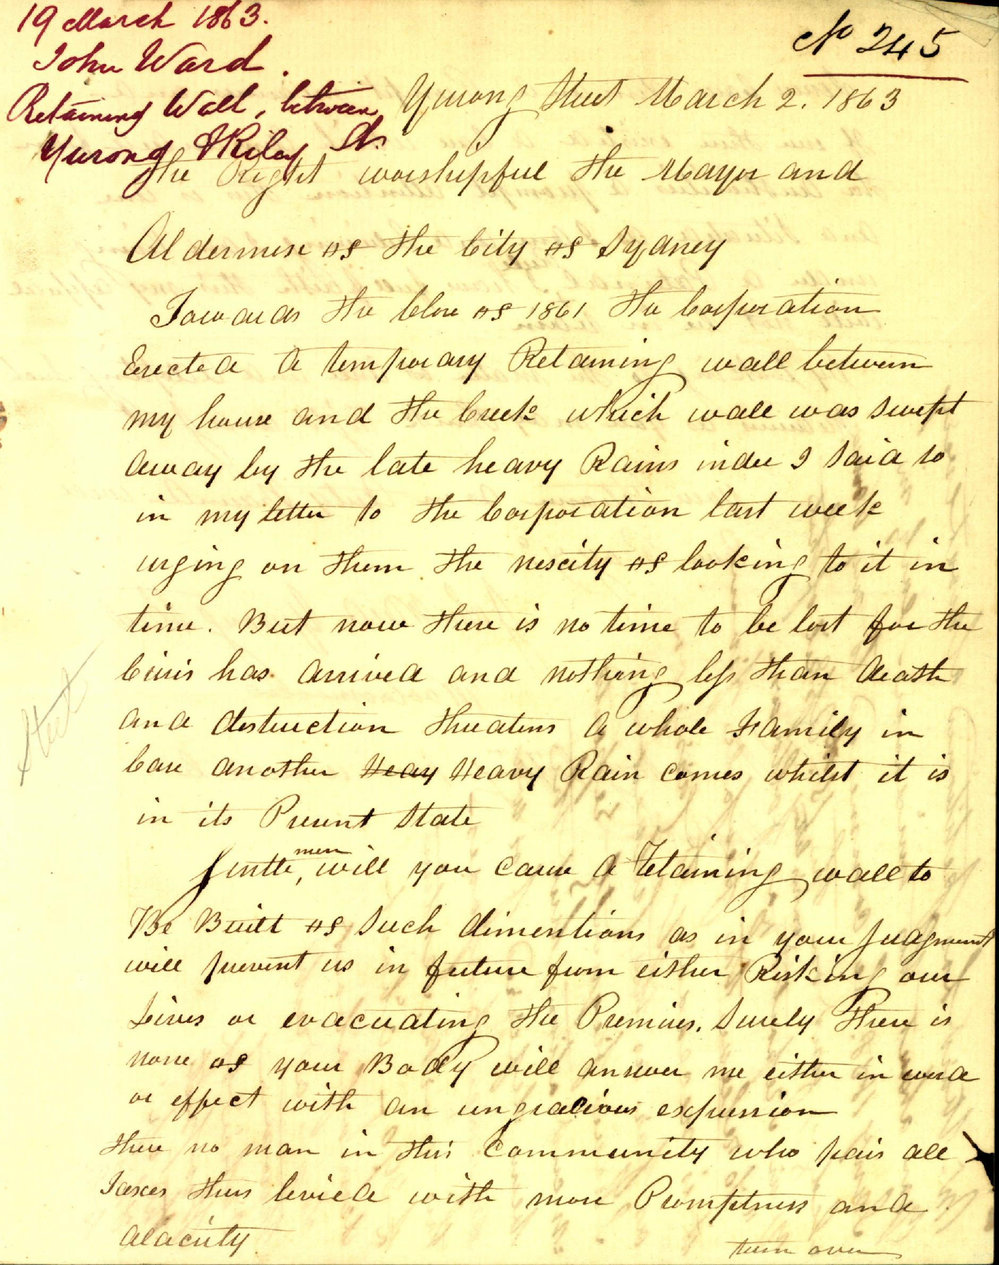 19 March 1863.
John Ward.
Retaining Wall, between
Yurong & Riley St.
No 245
Yurong Street March 2. 1863
The Right worshipful the Mayor and
Aldermen of the City of Sydney
Towards the Close of 1861 the Corporation
Erected a temporary Retaining wall between
my house and the Creek which wall was swept
away by the late heavy Rains indee I said so
in my letter to the Corporation last week
urging on them the nescity of looking to it in
time. But now there is no time to be lost for the
Crisis has arrived and nothing less than death
and distruction threatens a whole Family in
Case another Heay Heavy Rain comes whilst it is
in its Present State
Gentlemen, will you cause a Retaining wall to
Be Built of Such dimentions as in your Judgment
will prevent us in future from either Risking our
Lives or evacuating the Premises. Surely There is
none of your Body will answer me either in word
or effect with an ungracious expression
there no man in this Community who pais all
Taxes thus levied with more Promptness and
alacrity
turn over
Street